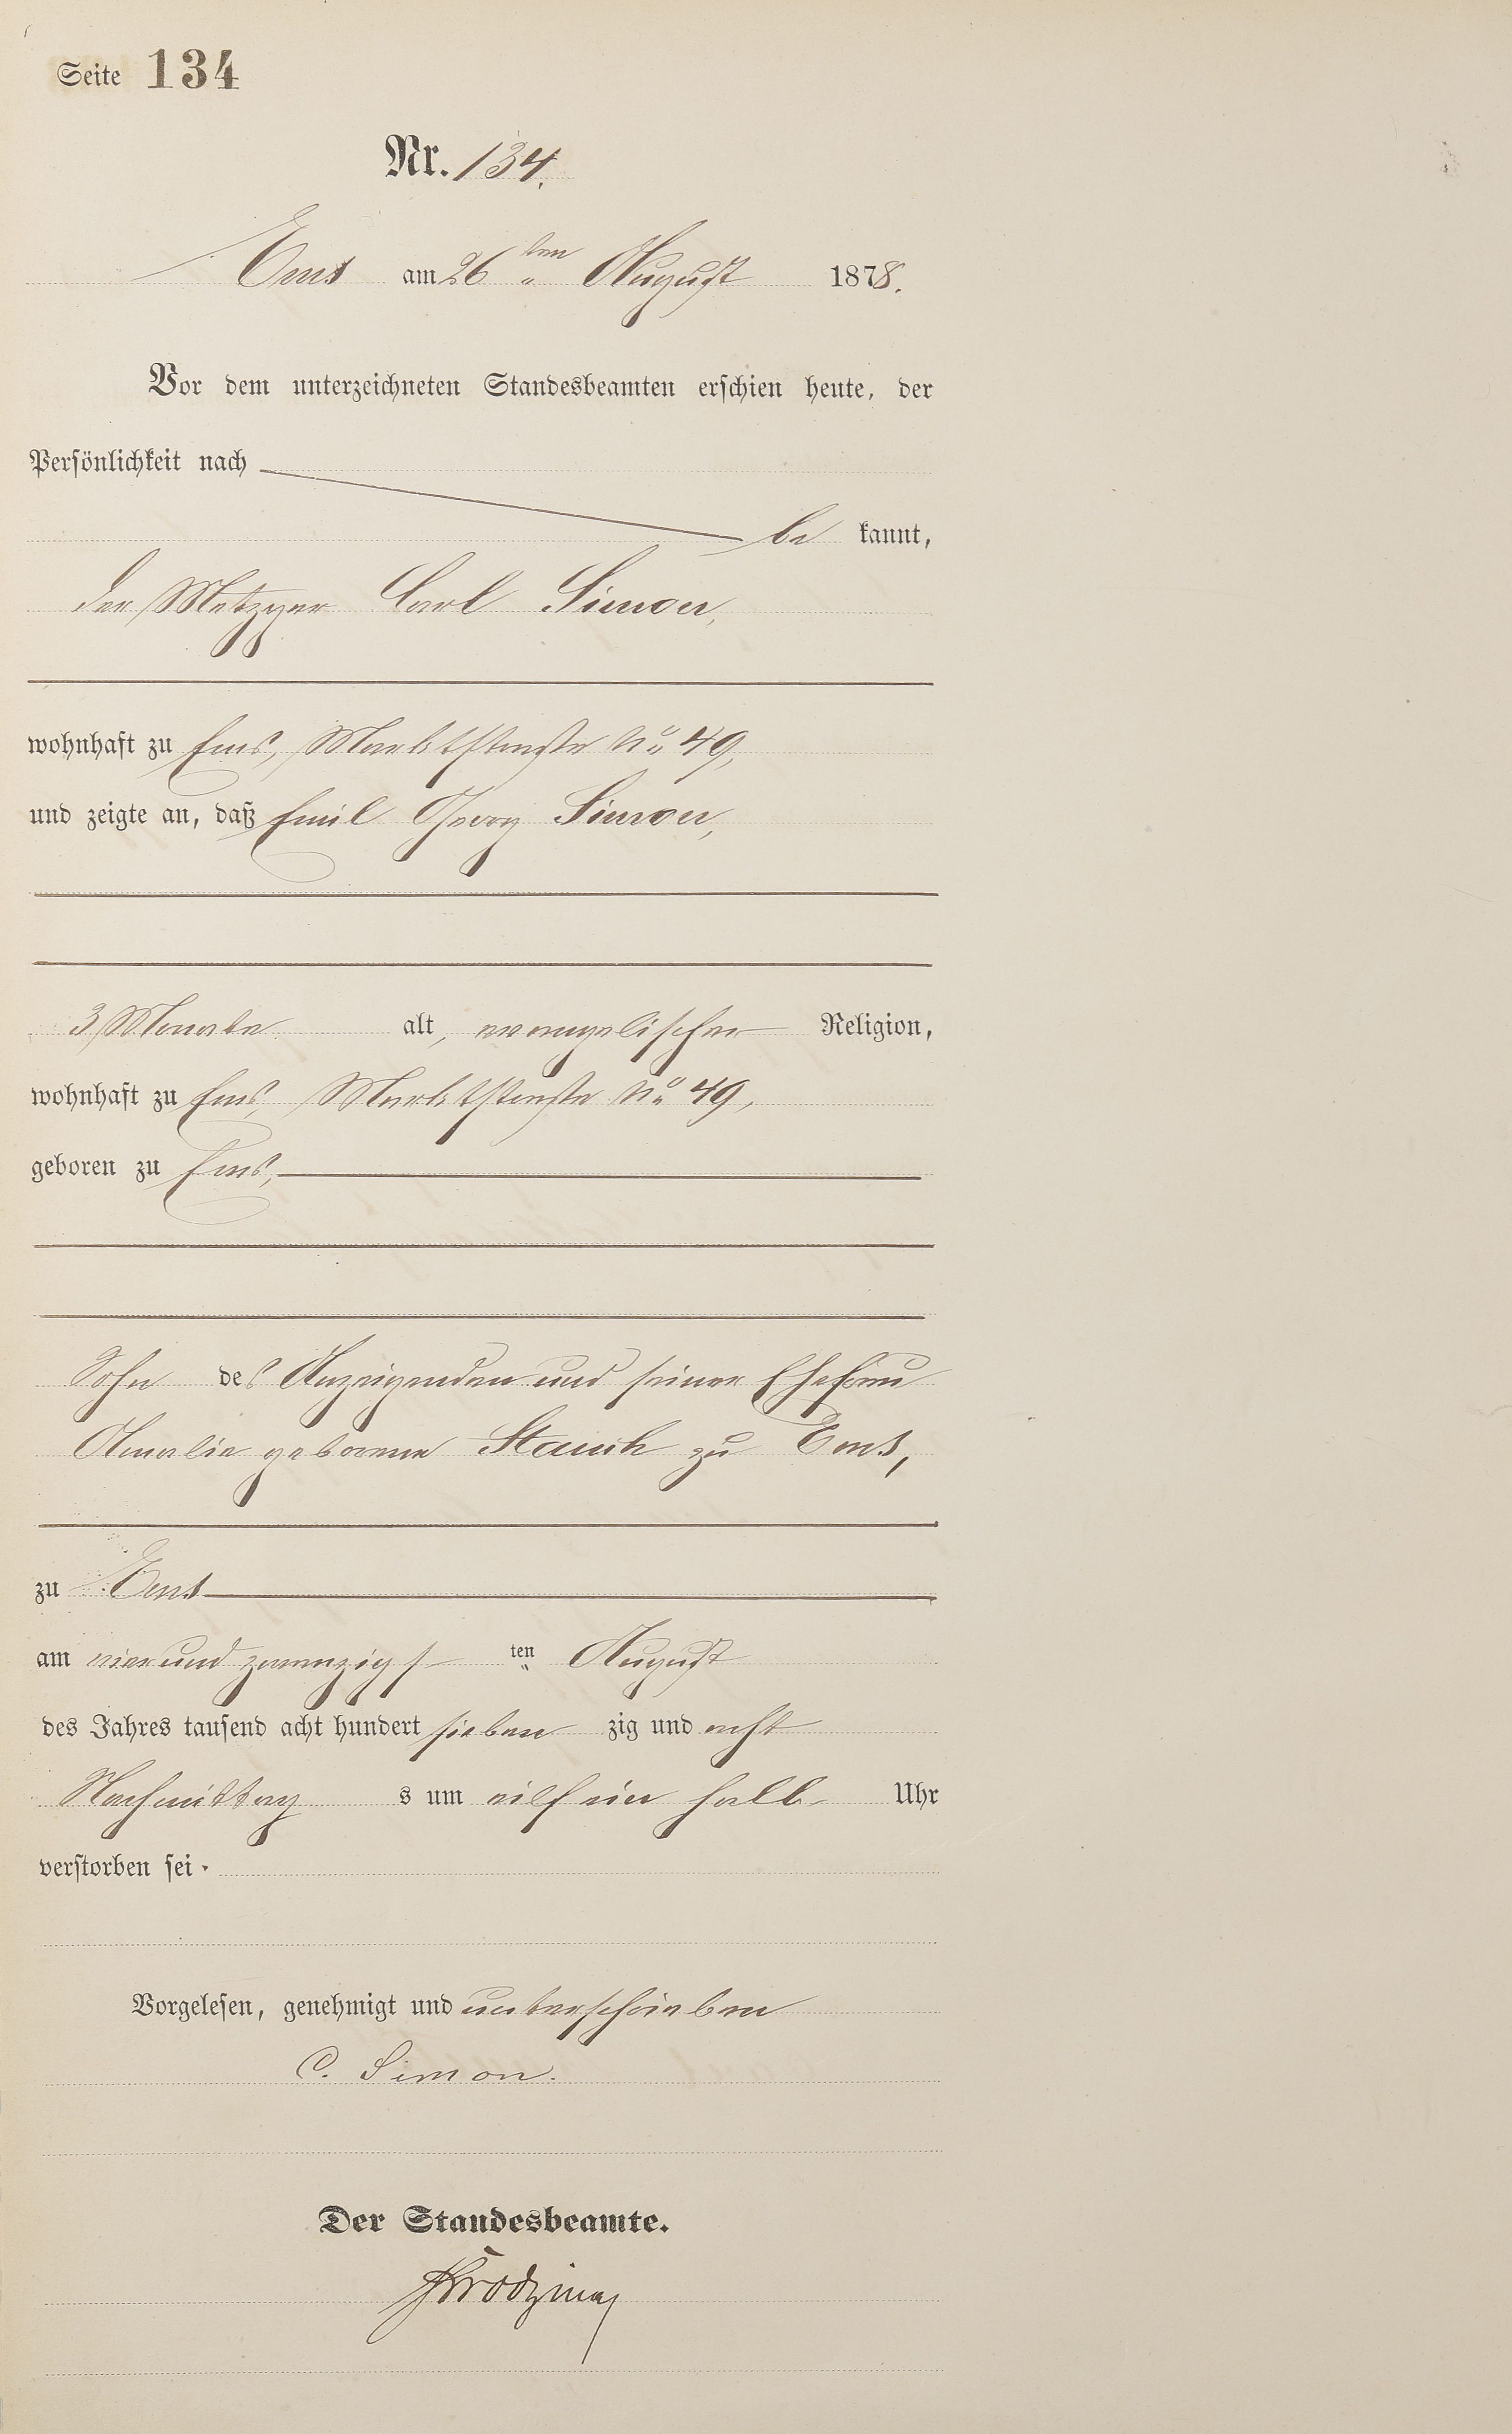 Seite 134
Nr. 134.
Ems am 26ten August 1878.
Vor dem unterzeichneten Standesbeamten erschien heute, der
Persönlichkeit nach
be kannt,
der Metzger Carl Simon,
wohnhaft zu Ems, Marktstraße No 49,
und zeigte an, daß Emil Georg Simon,
3 Monate alt, evangelischer Religion,
wohnhaft zu Ems, Marktstraße No 49,
geboren zu Ems,
Sohn des Anzeigenden und seiner Ehefrau
Amalie geborene Stauch zu Ems,
zu Ems
am vierundzwanzigsten August
des Jahres tausend acht hundert sieben zig und acht
Nachmittag s um eilf ein halb Uhr
verstorben sei.
Vorgelesen, genehmigt und unterschrieben
C. Simon.
Der Standesbeamte.